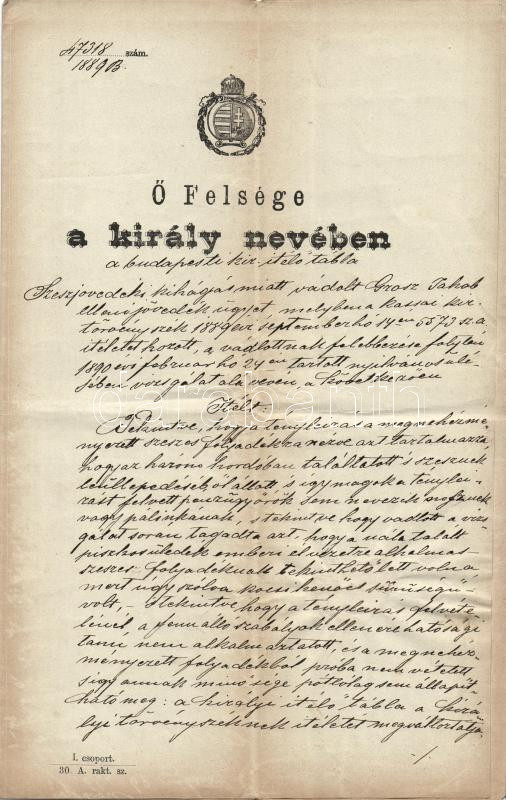 47318 szám.
1889 B.
Ő Felsége
a király nevében
a budapesti kir. itélő tábla
Szeszjövedéki kihágás miatt vádolt Grosz Jakab
elleni jövedék ügyet, melyben a kassai kir.
törvényszék 1889 évi september hó 14én 5573 sz. a.
itéletet hozott, a vádlottnak felebbezése folytán
1890 évi februar hó 24én tartott nyilvános ülé-
sében vizsgálat alá vevén, a következően
Itélt:
Tekintve, hogy a tényleirás a
szeszes folyadékra nézve azt tartalmazza
hogy az három hordóban találtatott s szesznek
leüllepedéséből állott s így magok a ténylei-
rást felvett pénzügyőrök sem nevezik
vagy pálinkának, s tekintve hogy vádlott a vizs
gálat során tagadta azt, hogy a nála talált
piszkos üledék emberi élvezetre alkalmas
szeszes folyadéknak tekinthető lett volna
mert úgy szólva kocsikenőcs sűrűségű
volt, - s tekintve hogy a tényleirás felvéte
lénél a fennálló szabályok ellenére hatósági
tanú nem alkalmaztatott, és a
folyadékból próba nem vétetett
s így annak minősége pótlólag sem állapít
ható meg: a királyi itélő tábla a kirá
lyi törvényszéknek itéletét megváltoztatja
·/.
I. csoport.
30. A. rakt. sz.
darabanth